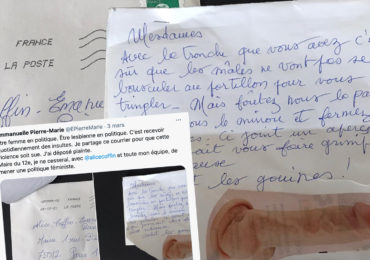 FRANCE
LA POSTE
Mesdames
Avec la tronche que vous avez c'
sûr que les mâles ne vont pas se
bousculer au portillon pour vous
tringler - Mais foutez nous la pa
le minou et fermez
Ci joint un aperçu
ait vous faire grimp
euse
les gouines !
ffin - Emma
mmanuelle Pierre-Marie @EPierreMarie · 3 mars
tre femme en politique. Être lesbienne en politique. C'est recevoir
uotidiennement des insultes. Je partage ce courrier pour que cette
iolence soit sue. J'ai déposé plainte.
Maire du 12e, je ne cesserai, avec @alicecoffin et toute mon équipe, de
mener une politique féministe.
FRANCE
LA POSTE